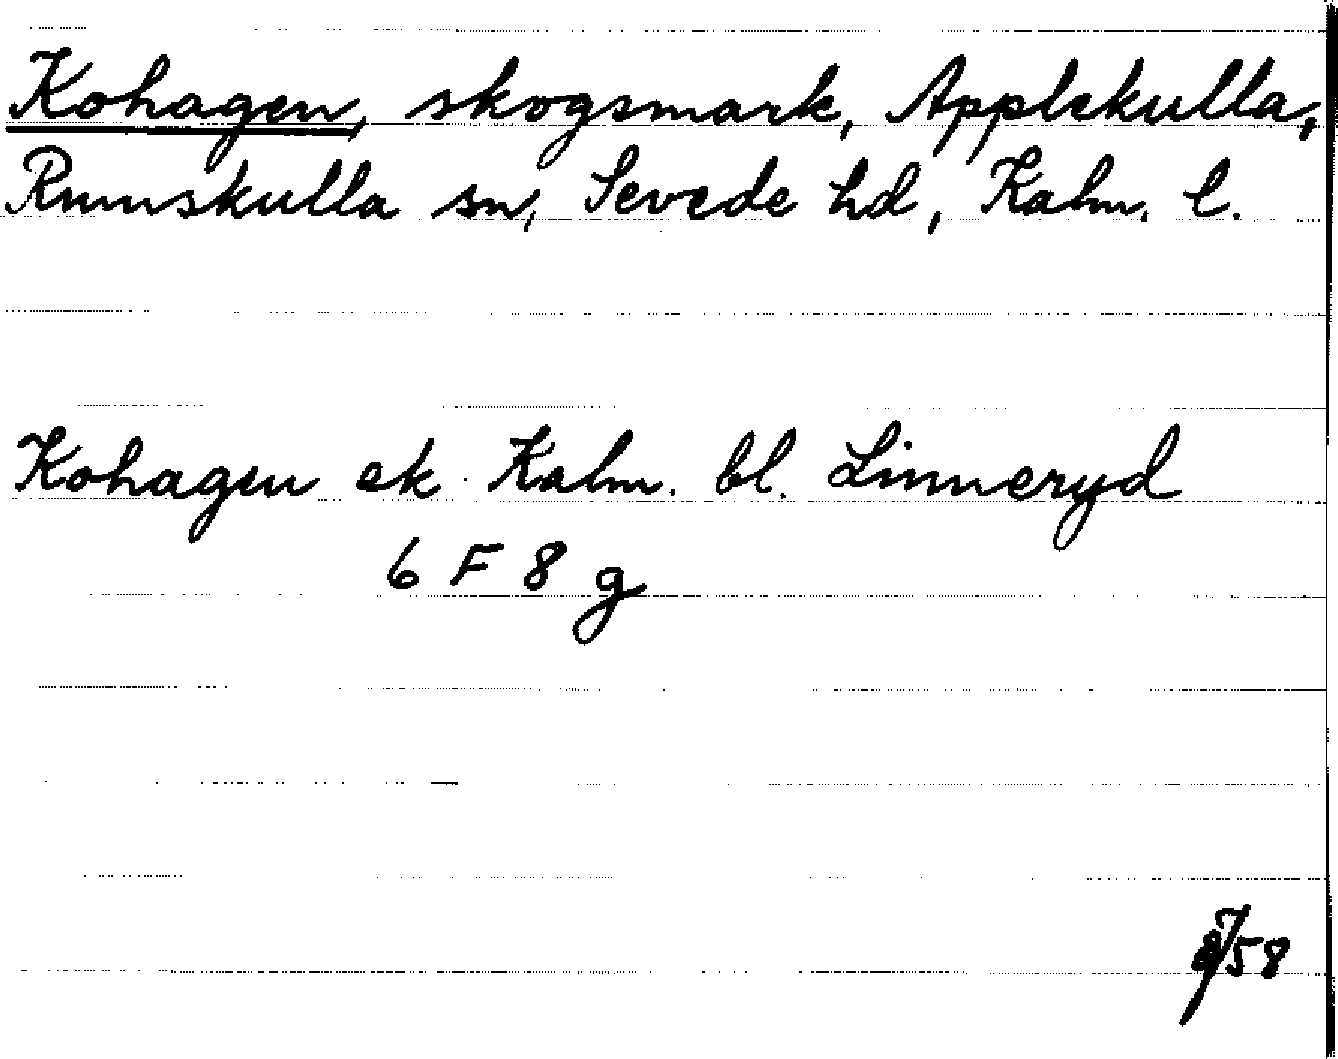 Kohagen, skogsmark, Applekulla,
Rumskulla sn, Sevede hd, Kalm. l.
Kohagen ek Kalm. bl. Linneryd
6 F 8 g